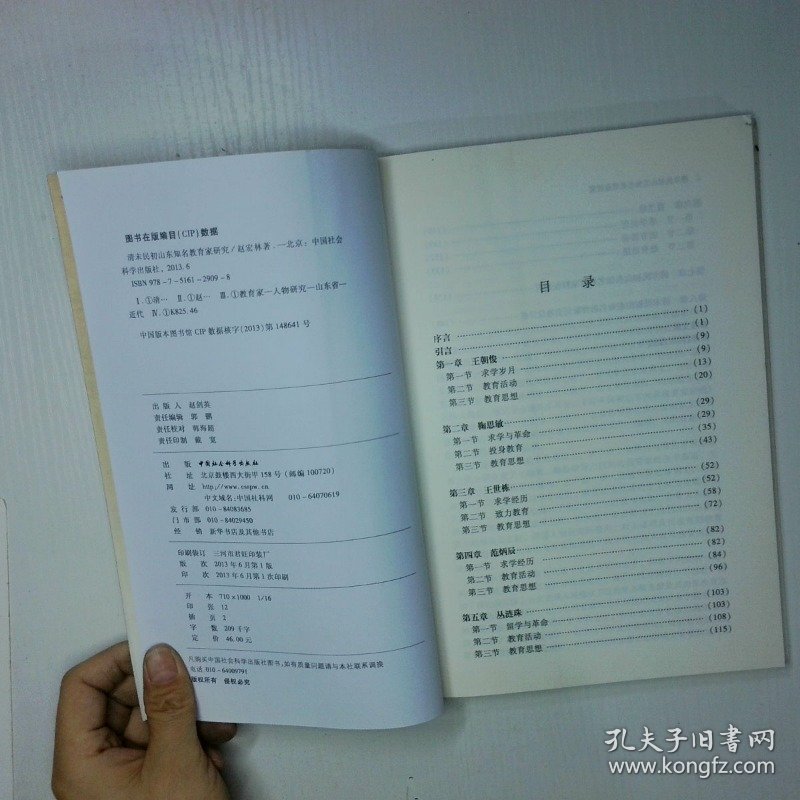 图书在版编目(CIP)数据
清末民初山东知名教育家研究/赵宏林著.—北京:中国社会
科学出版社,2013.6
ISBN 978-7-5161-2909-8
Ⅰ.①清… Ⅱ.①赵… Ⅲ.①教育家—人物研究—山东省—
近代 Ⅳ.①K825.46
中国版本图书馆CIP数据核字(2013)第148641号
出版人 赵剑英
责任编辑 郭鹏
责任校对 韩海超
责任印制 戴宽
出版 中国社会科学出版社
社址 北京鼓楼西大街甲158号(邮编100720)
网址 http://www.csspw.cn
中文域名:中国社科网 010-64070619
发行部 010-84083685
门市部 010-84029450
经销 新华书店及其他书店
印刷装订 三河市君旺印装厂
版次 2013年6月第1版
印次 2013年6月第1次印刷
开本 710×1000 1/16
印张 12
插页 2
字数 209千字
定价 46.00元
凡购买中国社会科学出版社图书,如有质量问题请与本社联系调换
电话:010-64009791
版权所有 侵权必究
目 录
序言 (1)
引言 (1)
第一章 王朝俊 (9)
第一节 求学岁月 (9)
第二节 教育活动 (13)
第三节 教育思想 (20)
第二章 鞠思敏 (29)
第一节 求学与革命 (29)
第二节 投身教育 (35)
第三节 教育思想 (43)
第三章 王世栋 (52)
第一节 求学经历 (52)
第二节 致力教育 (58)
第三节 教育思想 (72)
第四章 范炳辰 (82)
第一节 求学经历 (82)
第二节 教育活动 (84)
第三节 教育思想 (96)
第五章 丛涟珠 (103)
第一节 留学与革命 (103)
第二节 教育活动 (108)
第三节 教育思想 (115)
孔夫子旧书网
www.kongfz.com